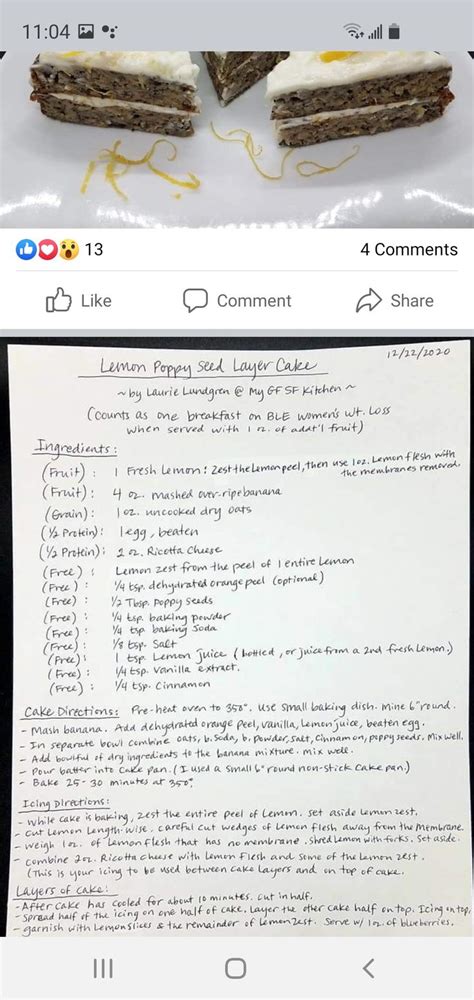 11:04
13
4 Comments
Like
Comment
Share
12/22/2020
Lemon Poppy Seed Layer Cake
~ by Laurie Lundgren @ My GF SF Kitchen ~
(counts as one breakfast on BLE Women's Wt. Loss
when served with 1 oz. of addt'l fruit)
Ingredients:
(Fruit): 1 Fresh Lemon: zest the Lemon peel, then use 1 oz. Lemon flesh with
the membranes removed.
(Fruit): 4 oz. mashed over-ripe banana
(Grain): 1 oz. uncooked dry oats
(½ Protein): 1 egg, beaten
(½ Protein): 2 oz. Ricotta Cheese
(Free): Lemon zest from the peel of 1 entire Lemon
(Free): ¼ tsp. dehydrated orange peel (optional)
(Free): ½ Tbsp. Poppy seeds
(Free): ¼ tsp baking powder
(Free): ¼ tsp. baking Soda
(Free): ⅛ tsp. Salt
(Free): 1 tsp. Lemon juice (bottled, or juice from a 2nd fresh Lemon.)
(Free): ¼ tsp. Vanilla extract.
(Free): ¼ tsp. Cinnamon
Cake Directions: Pre-heat oven to 350°. Use small baking dish. Mine 6" round.
- Mash banana. Add dehydrated orange peel, vanilla, Lemon juice, beaten egg.
- In separate bowl combine oats, b. Soda, b. Powder, Salt, Cinnamon, poppy seeds. Mix well.
- Add bowlful of dry ingredients to the banana mixture. mix well.
- Pour batter into cake pan. (I used a small 6" round non-stick cake pan.)
- Bake 25-30 minutes at 350°
Icing Directions:
- While cake is baking, zest the entire peel of Lemon. set aside Lemon zest.
- Cut Lemon Length-wise. careful cut wedges of Lemon flesh away from the Membrane.
- weigh 1 oz. of Lemon flesh that has no membrane. Shred Lemon with forks. Set aside.
- combine 2 oz. Ricotta cheese with Lemon Flesh and some of the Lemon zest.
(This is your icing to be used between cake layers and on top of cake.
Layers of cake:
- After cake has cooled for about 10 minutes. cut in half.
- Spread half of the icing on one half of cake. Layer the other cake half on top. Icing on top,
- garnish with Lemon slices & the remainder of Lemon Zest. Serve w/ 1 oz. of blueberries.